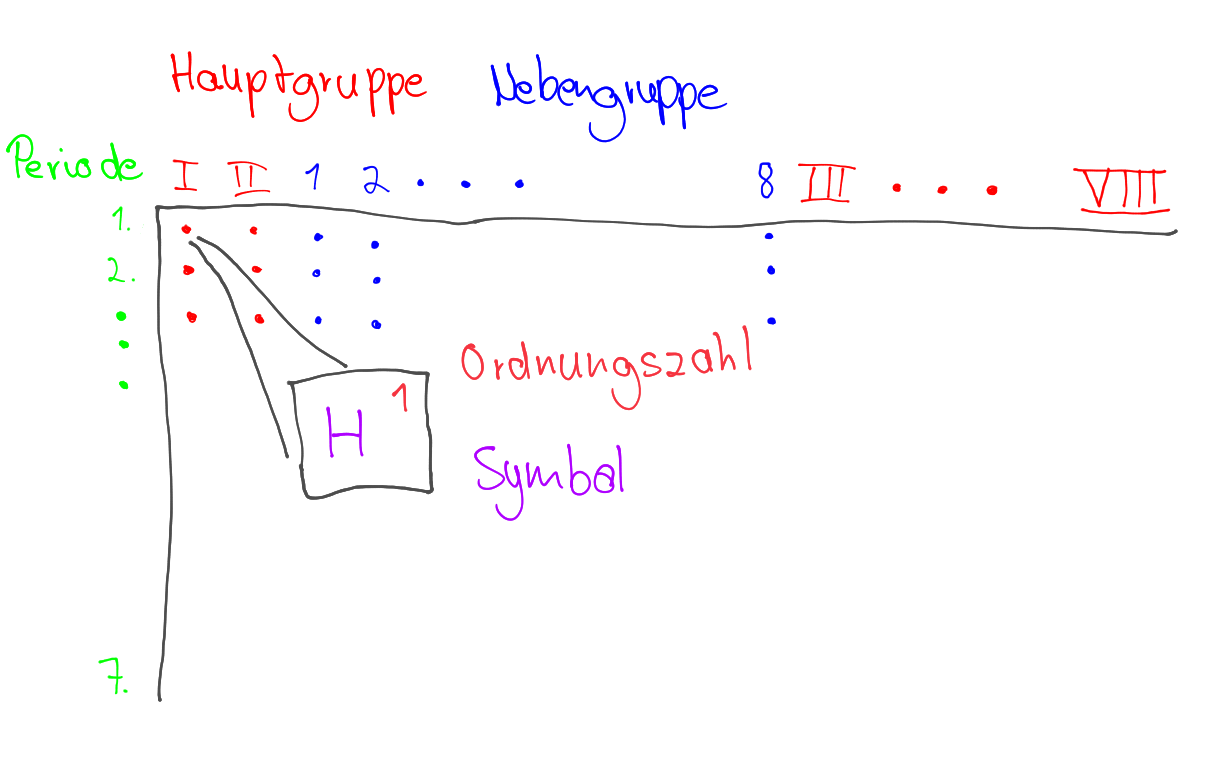 Hauptgruppe Nebengruppe
Periode I II 1 2 . . . 8 III . . . VIII
1.
2.
Ordnungszahl
H 1
Symbol
7.